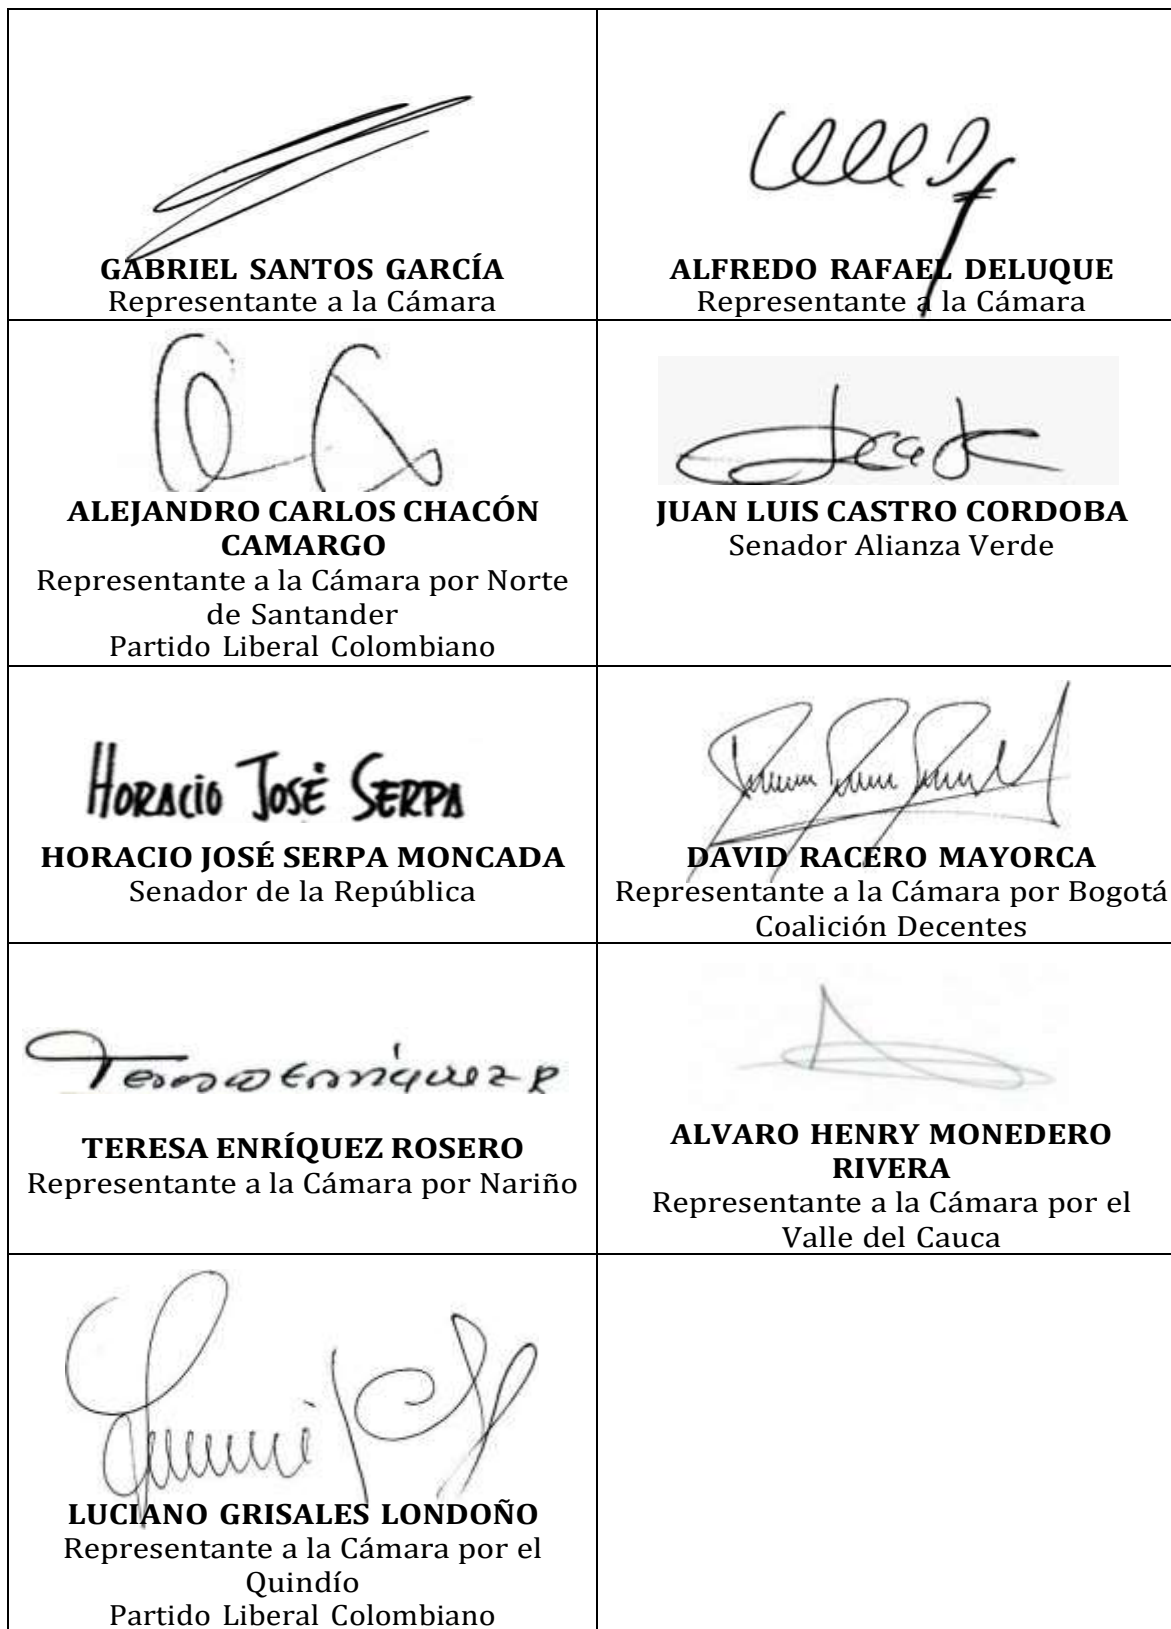 GABRIEL SANTOS GARCÍA
Representante a la Cámara
ALFREDO RAFAEL DELUQUE
Representante a la Cámara
ALEJANDRO CARLOS CHACÓN
CAMARGO
Representante a la Cámara por Norte
de Santander
Partido Liberal Colombiano
JUAN LUIS CASTRO CORDOBA
Senador Alianza Verde
HORACIO JOSÉ SERPA
HORACIO JOSÉ SERPA MONCADA
Senador de la República
DAVID RACERO MAYORCA
Representante a la Cámara por Bogotá
Coalición Decentes
Teresa Enríquez R
TERESA ENRÍQUEZ ROSERO
Representante a la Cámara por Nariño
ALVARO HENRY MONEDERO
RIVERA
Representante a la Cámara por el
Valle del Cauca
LUCIANO GRISALES LONDOÑO
Representante a la Cámara por el
Quindío
Partido Liberal Colombiano